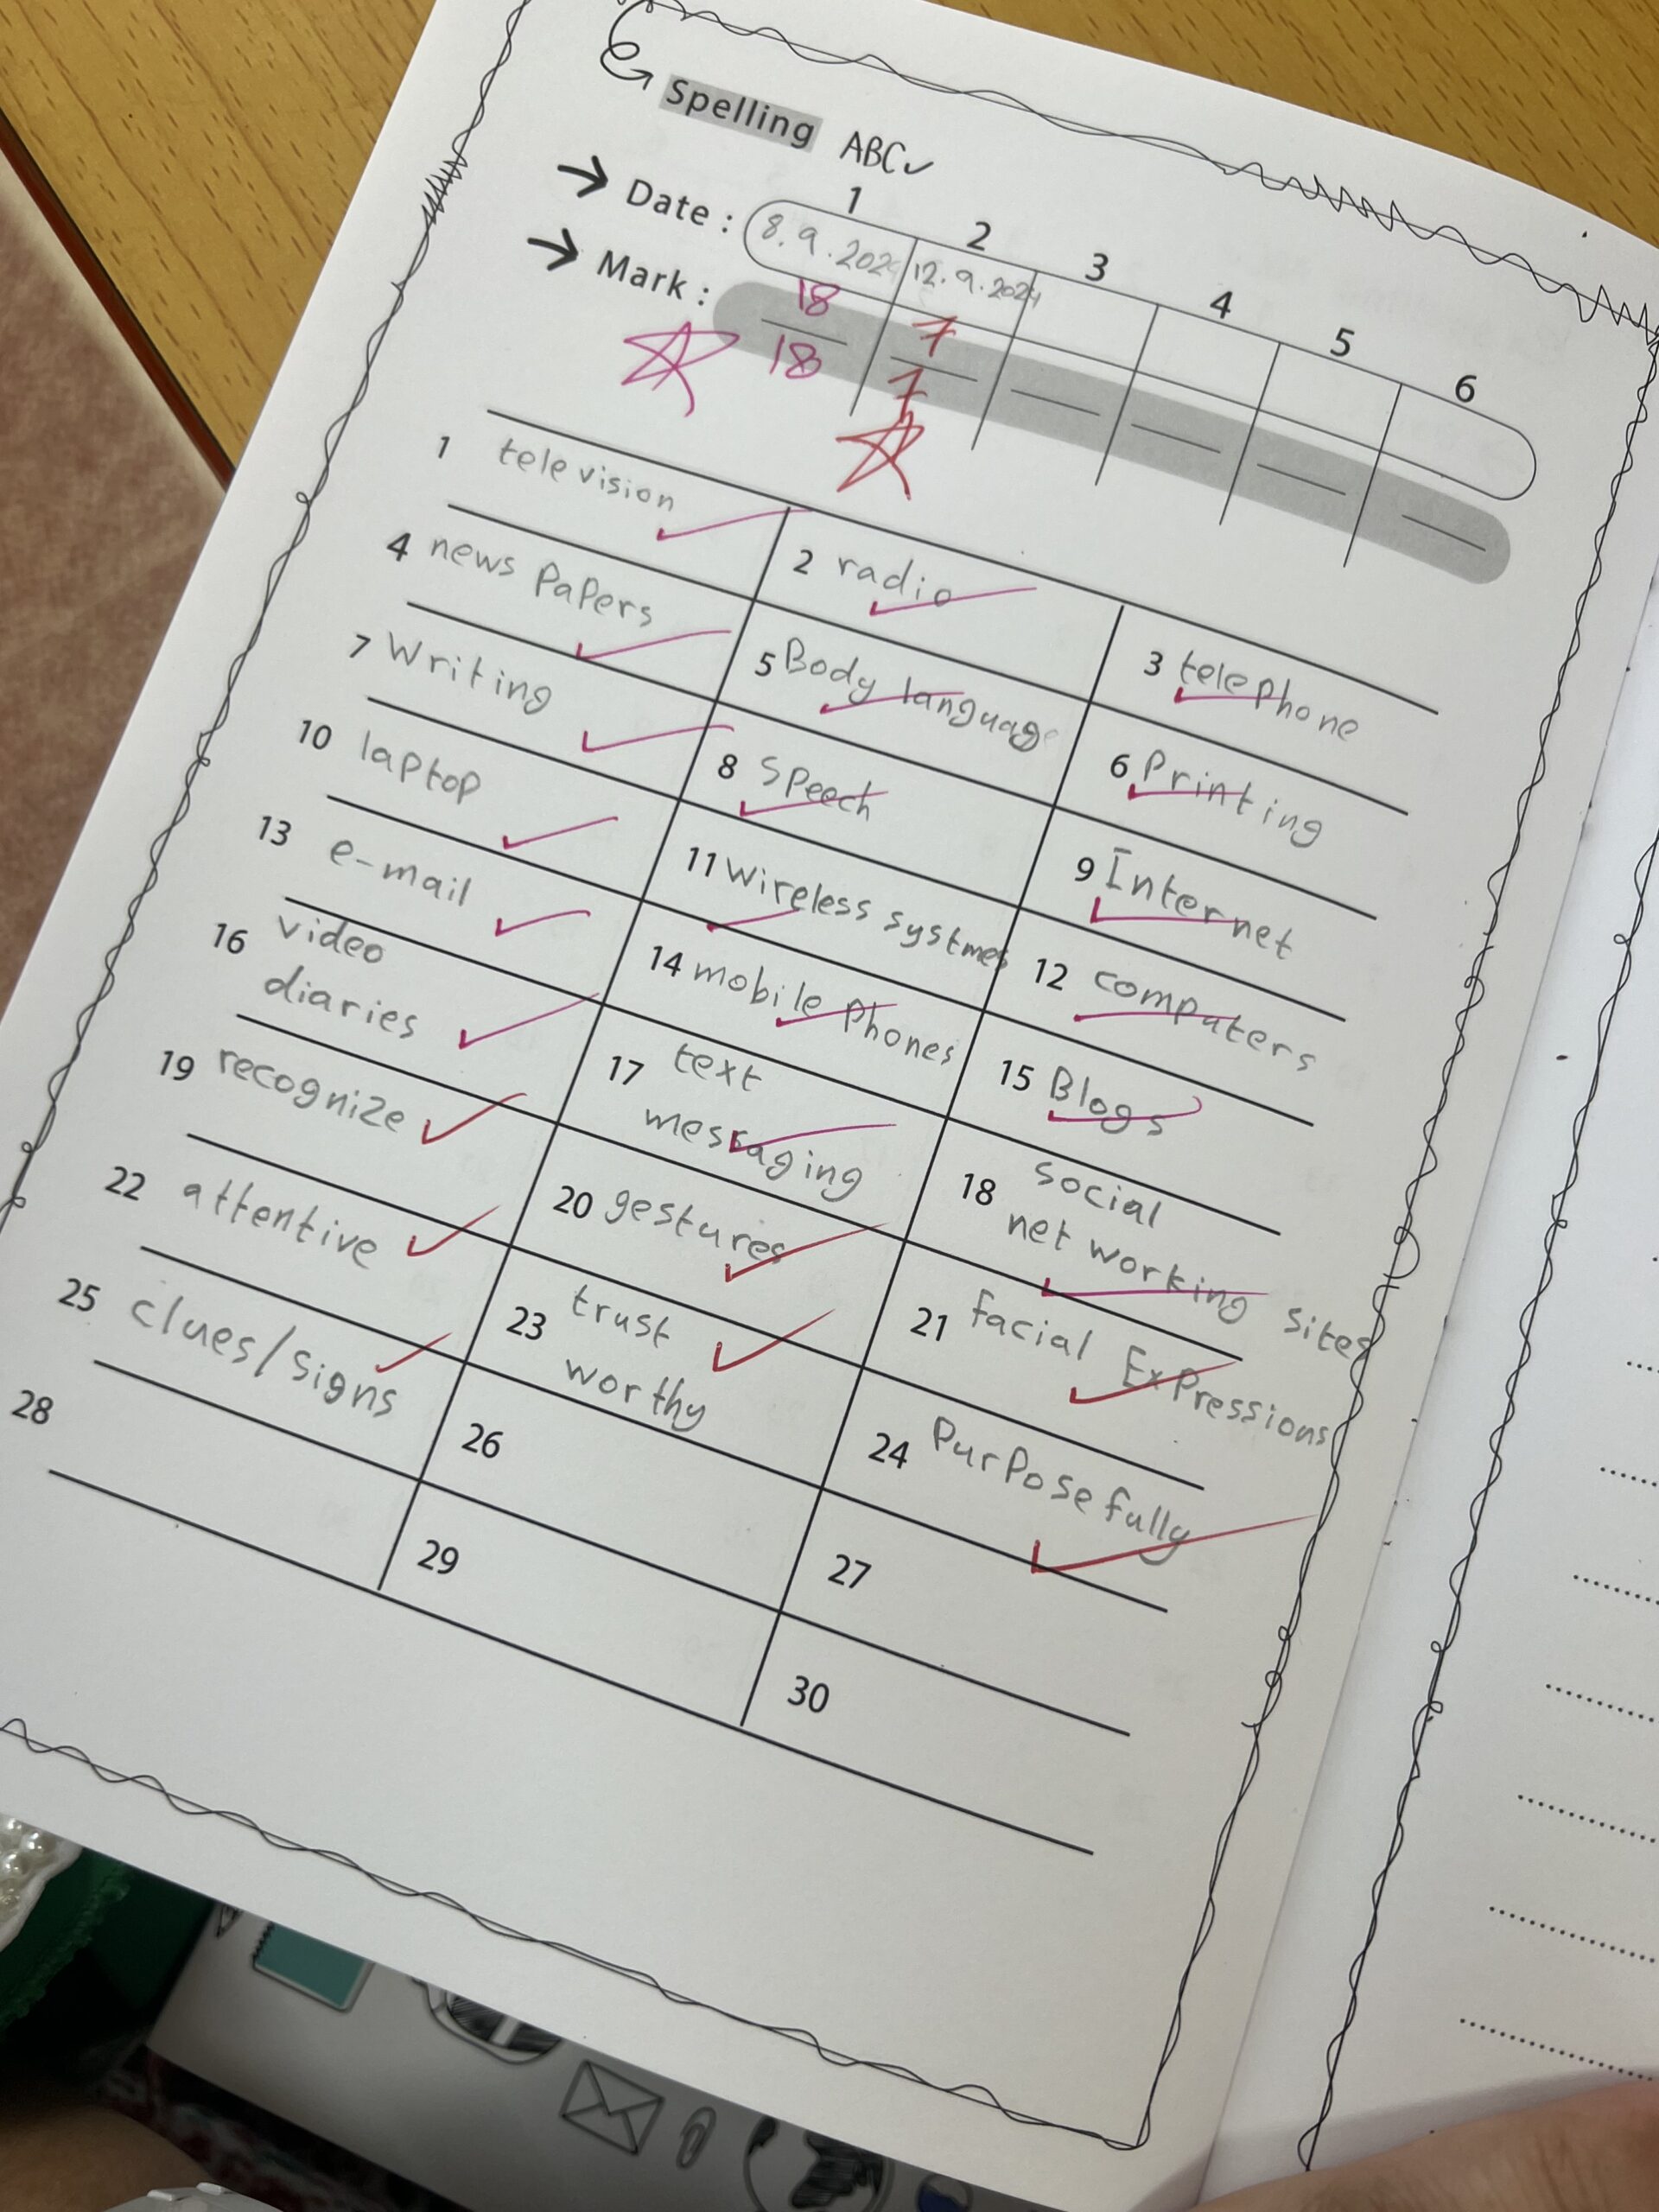 Spelling ABC
1 2 3 4 5 6
Date : 8.9.2024 12.9.2024
Mark : 18/18 7/7
1 television
2 radio
3 telephone
4 news papers
5 Body language
6 Printing
7 Writing
8 Speech
9 Internet
10 laptop
11 wireless systmes
12 computers
13 e-mail
14 mobile phones
15 Blogs
16 video
diaries
17 text
messaging
18 social
net working sites
19 recognize
20 gestures
21 facial Expressions
22 attentive
23 trust
worthy
24 Purpose fully
25 clues/signs
26
27
28
29
30